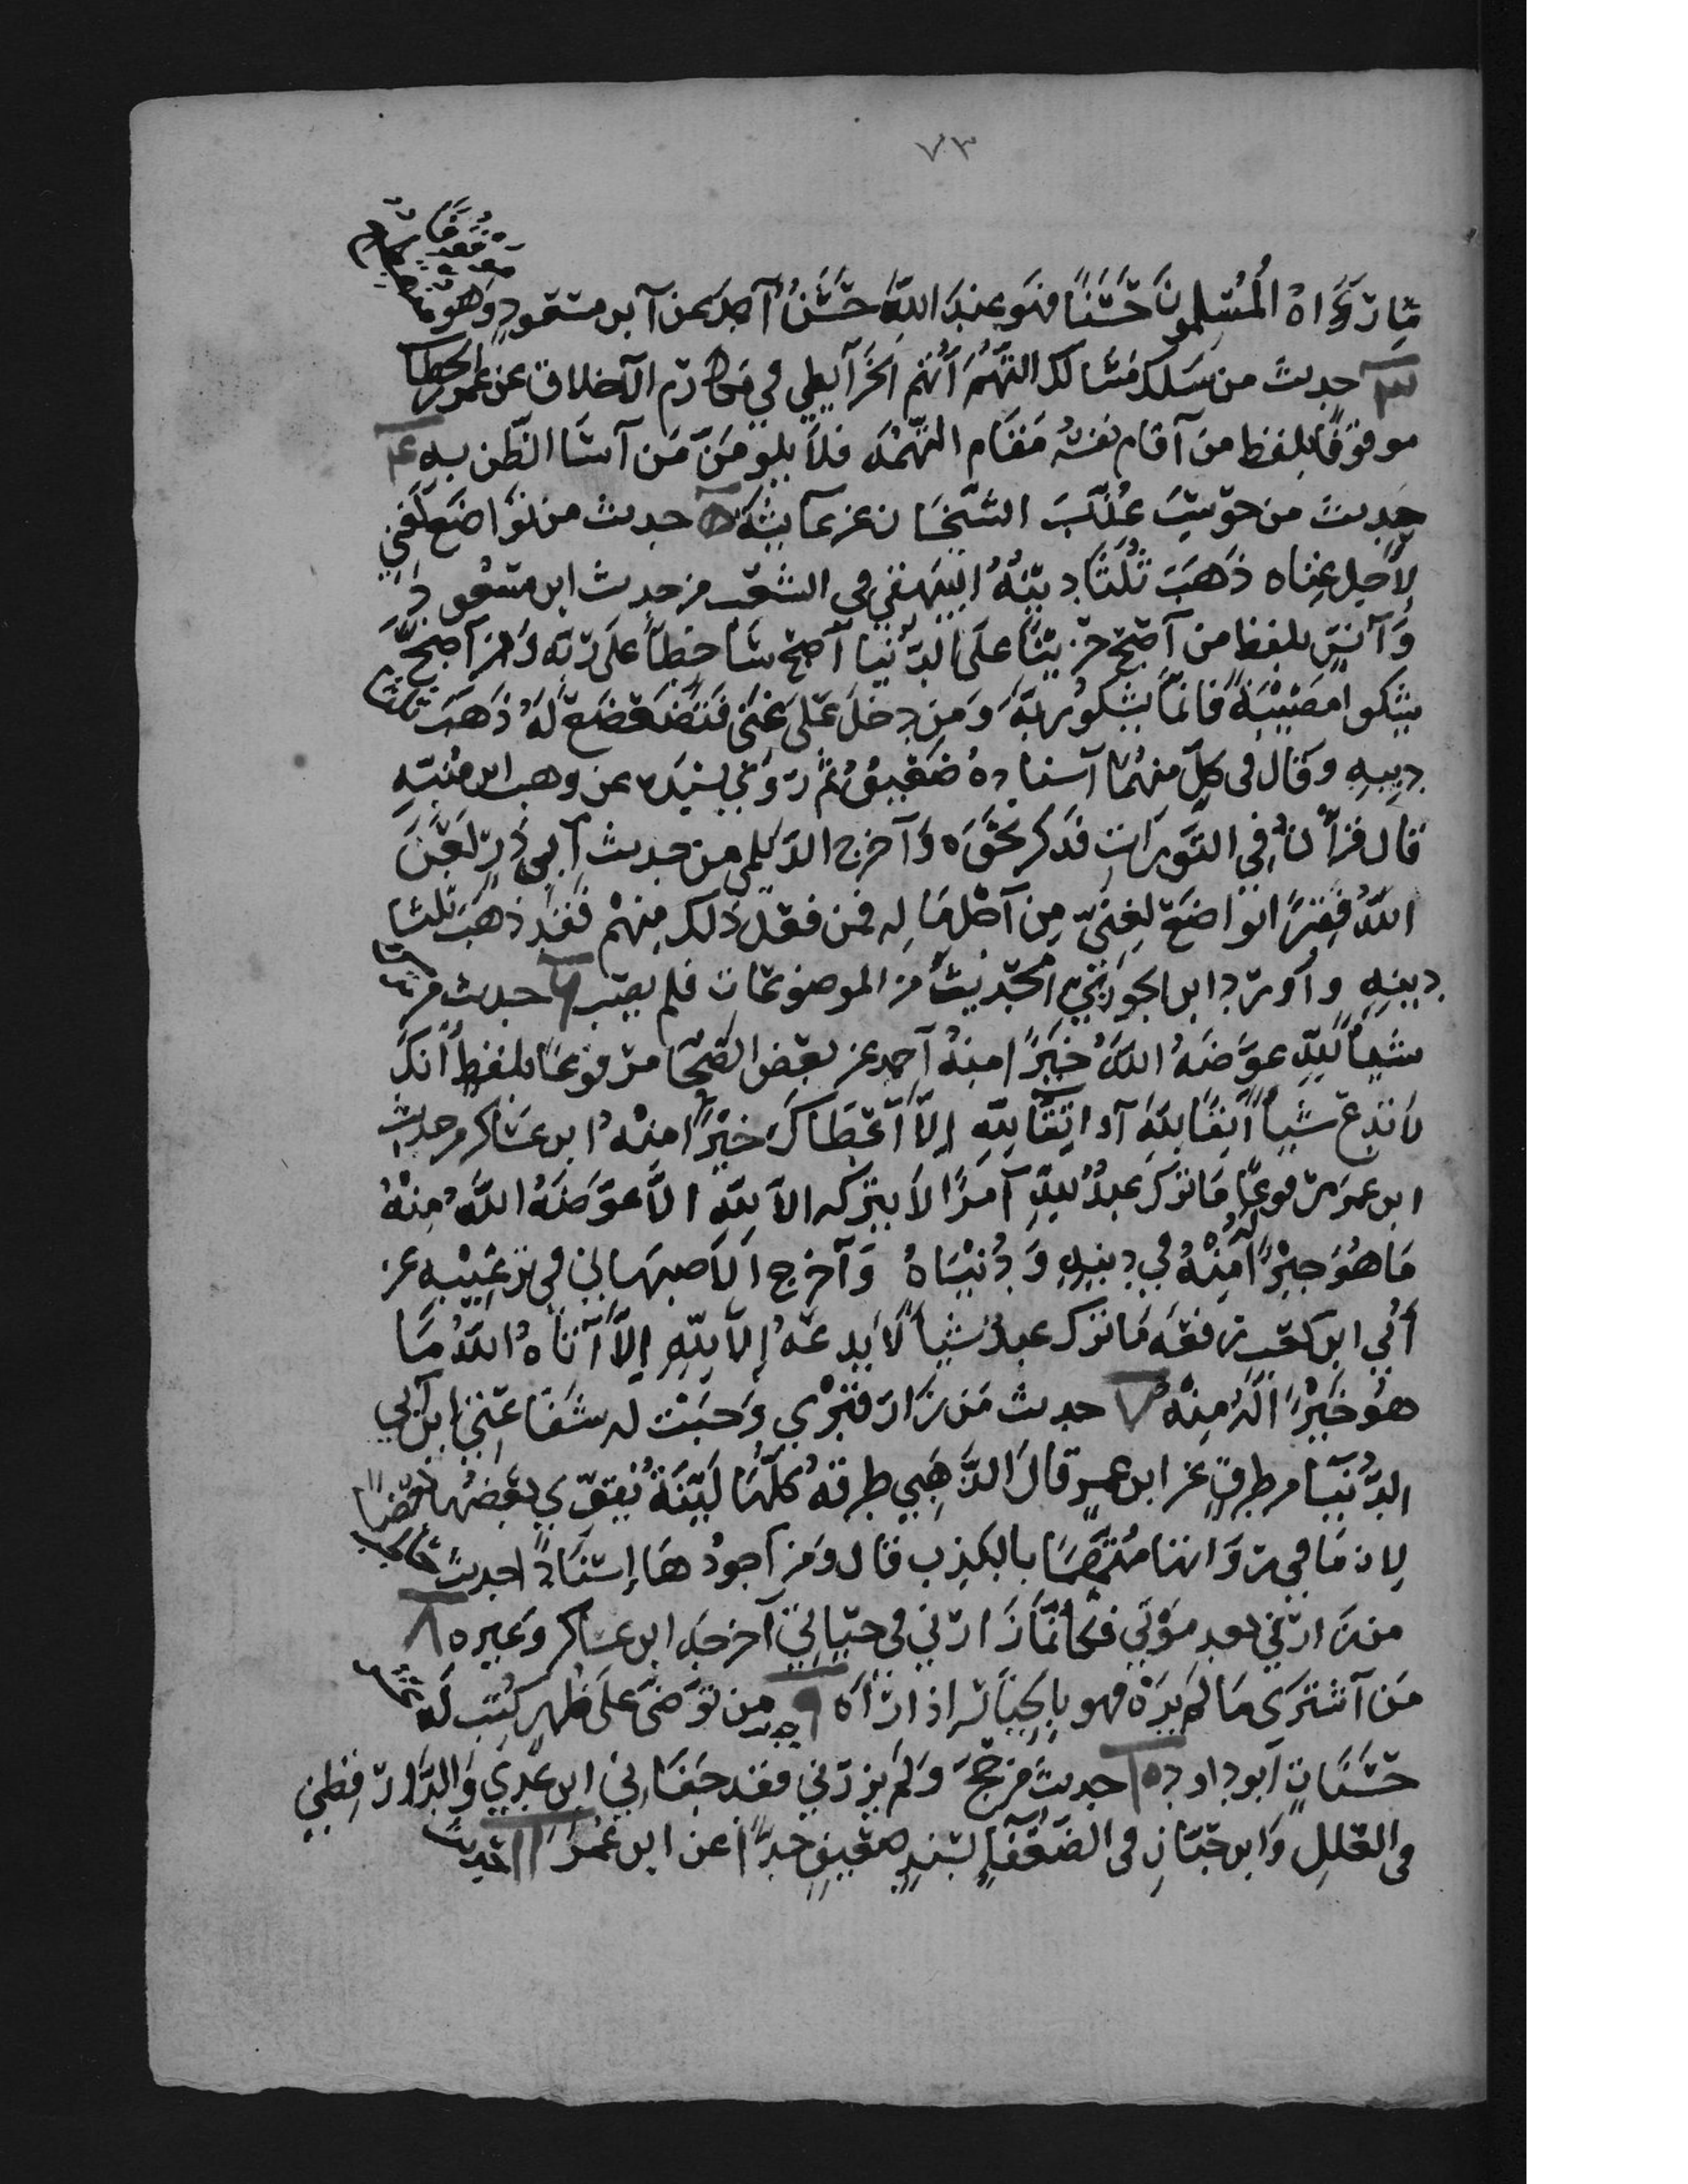 ٧٣
مَا رَوَاهُ الْمُسْلِمُونَ حَسَنًا فهو عِندَ اللهِ حَسَنٌ أحمد عن ابن مسعود وهو
موقوفًا
٣ حديث من سلك مسالك التهم اتهم الخرايطي في مكارم الاخلاق عن عمر الخطا
موقوفًا بلفظ من اقام نفسه مقام التهمه فلا يلومن من اسا الظن به ٤
حديث من حوسب عُذّبَ الشيخان عن عايشة ٥ حديث من تواضع لغني
لاجل غناه ذهب ثلثا دينه البيهقي في الشعب من حديث ابن مسعود
وانس بلفظ من اصبح حزينا على الدنيا اصبح ساخطا على ربه ومن اصبح
يشكوا مصيبة فانما يشكو ربه ومن دخل على غنى فتضعضع له ذهب ثلثا
دينه وقال في كل منهما اسناده ضعيف ثم روى بسنده عن وهب ابن منبه
قال قرأن في التورات فذكر نحوه واخرج الديلمي من حديث ابي ذر لعن
الله فقيرًا تواضع لغنيّ من اجل ماله فمن فعل ذلك منهم فقد ذهب ثلثا
دينه وأورد ابن الجوزي الحديث من الموضوعات فلم يصب ٦ حديث من ترك
شيأ لله عوضه الله خيرًا منه أحمد عن بعض الصحا مرفوعا بلفظ انك
لا تدع شيأ اتقا لله او اتقا لله الا اعطاك خيرًا منه ابن عساكر من حديث
ابن عمر مرفوعًا ما ترك عبد لله امرًا لا يتركه الا لله الا عوضه الله منه
ما هو خيرًا له منه في دينه ودنياه واخرج الاصبهاني في ترغيبه عن
أبي ابن كعب رفعه ما ترك عبد شيأ لا يدعه إلا لله إلا آتاه الله ما
هو خيرًا له منه ٧ حديث من زار قبري وجبت له شفاعتي ابن ابي
الدنيا من طرق عن ابن عمر قال الذهبي طرقه كلها لينة يقوي بعضها بعضا
لان ما في رواتها متهمًا بالكذب قال ومن اجودها إسنادًا حديث حاطب
من زارني بعد موتي فكانما زارني في حياتي اخرجه ابن عساكر وغيره ٨
من اشترى ما لم يره فهو بالخيار اذا رآه ٩ حديث من توضى على طهر كتب له عشر
حسنات ابو داود ١٠ حديث من حج ولم يزرني فقد جفاني ابن عدي والدارقطني
في العلل وابن حبان في الضعفآء بسند ضعيف جدًّا عن ابن عمر ١١ حديث